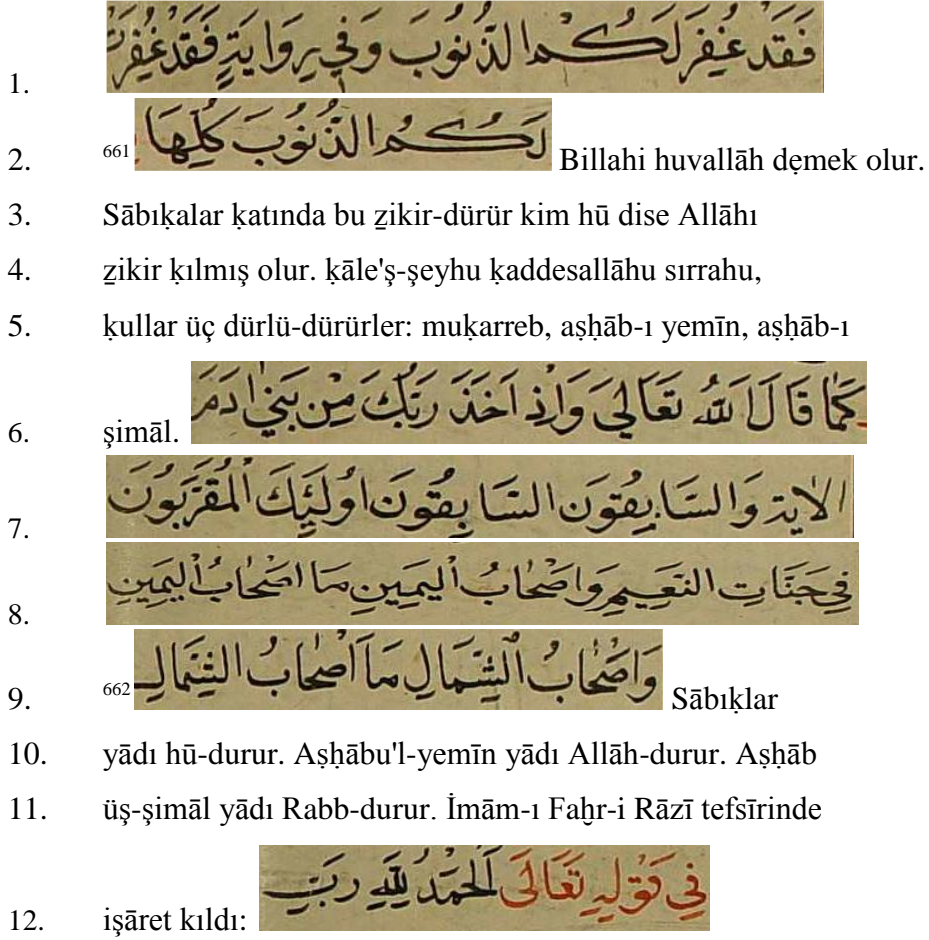 1. فَقَدْ غُفِرَ لَكُمُ الذُّنُوبَ وَفِي رِوَايَةٍ فَقَدْ غُفِرَتْ
2. لَكُمُ الذُّنُوبَ كُلِّهَا 661 Billahi huvallāh dẹmek olur.
3. Sābıḳalar ḳatında bu ẕikir-dürür kim hū dise Allāhı
4. ẕikir ḳılmış olur. ḳāle'ş-şeyhu ḳaddesallāhu sırrahu,
5. ḳullar üç dürlü-dürürler: muḳarreb, aṣḥāb-ı yemīn, aṣḥāb-ı
6. şimāl. كَمَا قَالَ اللهُ تَعَالَى وَاِذْ اَخَذَ رَبُّكَ مِنْ بَنِي اٰدَمَ
7. الاية وَالسَّابِقُونَ السَّابِقُونَ اُولَئِكَ الْمُقَرَّبُونَ
8. فِي جَنَّاتِ النَّعِيمِ وَاَصْحَابُ الْيَمِينِ مَا اَصْحَابُ الْيَمِينِ
9. وَاَصْحَابُ الشِّمَالِ مَا اَصْحَابُ الشِّمَالِ 662 Sābıḳlar
10. yādı hū-durur. Aṣḥābu'l-yemīn yādı Allāh-durur. Aṣḥāb
11. üş-şimāl yādı Rabb-durur. İmām-ı Faḫr-i Rāzī tefsīrinde
12. işāret kıldı: فِي قَوْلِهِ تَعَالَى اَلْحَمْدُ لِلّٰهِ رَبِّ